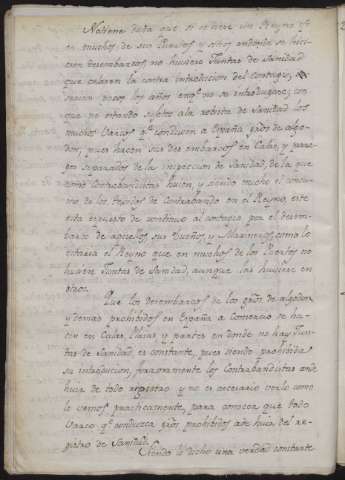 No tiene duda que si se viese un Reyno q.e
en muchos de sus Puertos y sitios andonde se hici-
eran desembarcos, no huviere Juntas de Sanidad
que celaren la contra introducion del Contagio,
serian pocos los años en q.e no se introdugere; con
que no estando sujetos a la visita de Sanidad los
muchos Varcos q.e conducen a España gros de algo-
don, pues hacen sus des embarcos en Calas, y para-
ges separados de la inspeccion de Sanidad, de la que
estos Contrabandistas huien, y siendo mucho el consu-
mo de los tegidos de Contrabando en el Reyno, este
esta expuesto de continuo al contagio por el desem-
barco de aquellos sus Dueños, y Marineros, como le
estaria el Reyno que en muchos de sus Puertos no
huviere Juntas de Sanidad, aunque las huviere en
otros.
Que los desembarcos de los gros de algodon
y demas prohibidos en España a Comercio se ha-
cen en Calas, Plaias y partes en donde no hay Jun-
tas de Sanidad, es constante, pues siendo prohibida
su introducion, precisamente los Contrabandistas ande
huir de todo registro y no es necesario verlo como
lo vemos practicamente, para conocer que todo
Varco q.e conduzca gros prohibidos ade huir del re-
gistro de Sanidad.
Siendo lo dicho una verdad constante